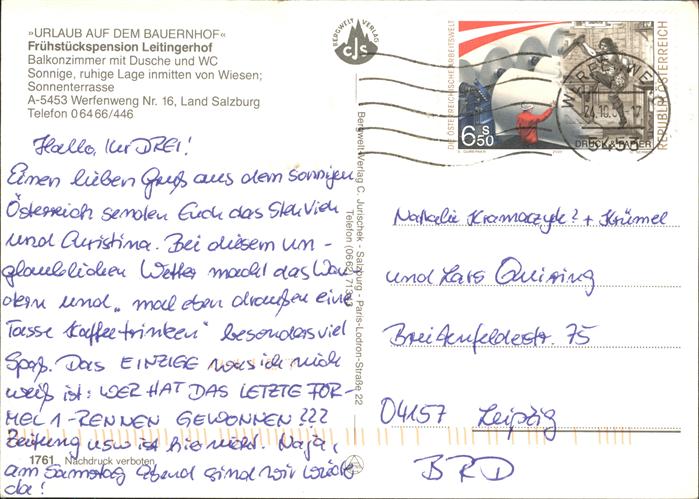 »URLAUB AUF DEM BAUERNHOF«
Frühstückspension Leitingerhof
Balkonzimmer mit Dusche und WC
Sonnige, ruhige Lage inmitten von Wiesen;
Sonnenterrasse
A-5453 Werfenweng Nr. 16, Land Salzburg
Telefon 06466/446
BERGWELT VERLAG
CJS
DIE ÖSTERREICHISCHE ARBEITSWELT
6.50 S
DRUCK & PAPIER
REPUBLIK ÖSTERREICH
24.10.
5453
Hallo, Ihr DREI!
Einen lieben Gruß aus dem sonnigen
Österreich senden Euch das
und Christina. Bei diesem un-
glaublichen Wetter macht das Wan-
dern und „mal eben draußen eine
Tasse Kaffee trinken" besonders viel
Spaß. Das EINZIGE was ich nich
weiß ist: WER HAT DAS LETZTE FOR-
MEL 1-RENNEN GEWONNEN???
Zeitung usw ist hier nicht. Naja,
am Samstag Abend sind wir wieder
da!
1761 Nachdruck verboten
Bergwelt-Verlag C. Jurischek - Salzburg - Paris-Lodron-Straße 22
Telefon (0662) 71
Nathalie Kramarczyk? + Krümel
und Lars Quiring
Breitenfelderstr. 75
04157 Leipzig
BRD